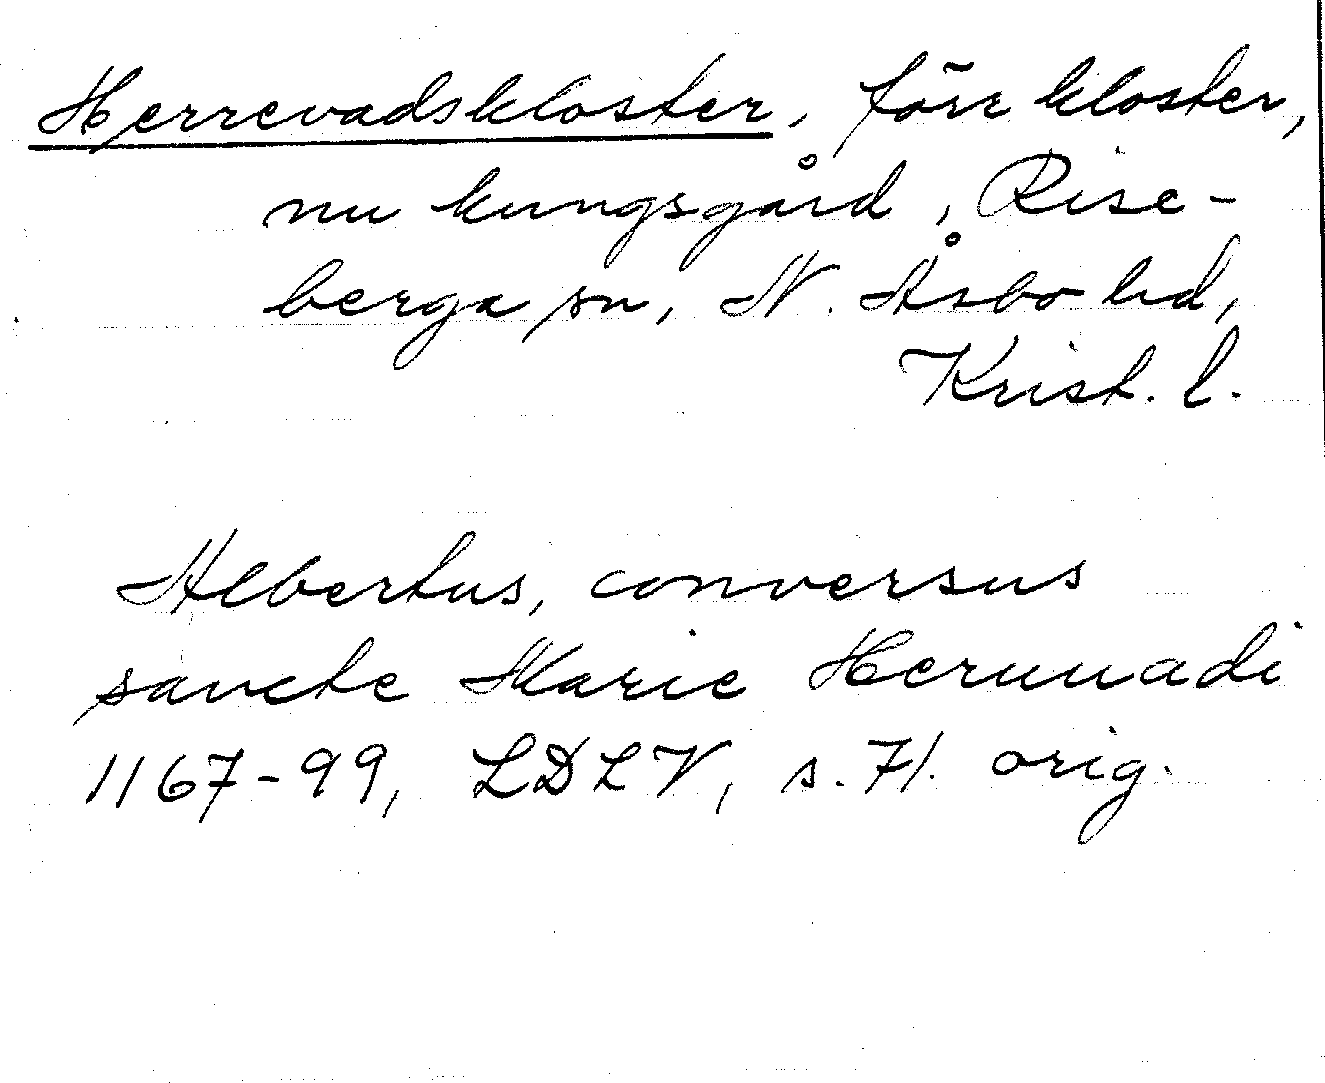 Herrevadskloster, förr kloster,
nu kungsgård, Rise-
berga sn, N. Åsbo hd,
Krist. l.
Albertus, conversus
sancte Marie Heruuadi
1167-99, LDLV, s. 71. orig.